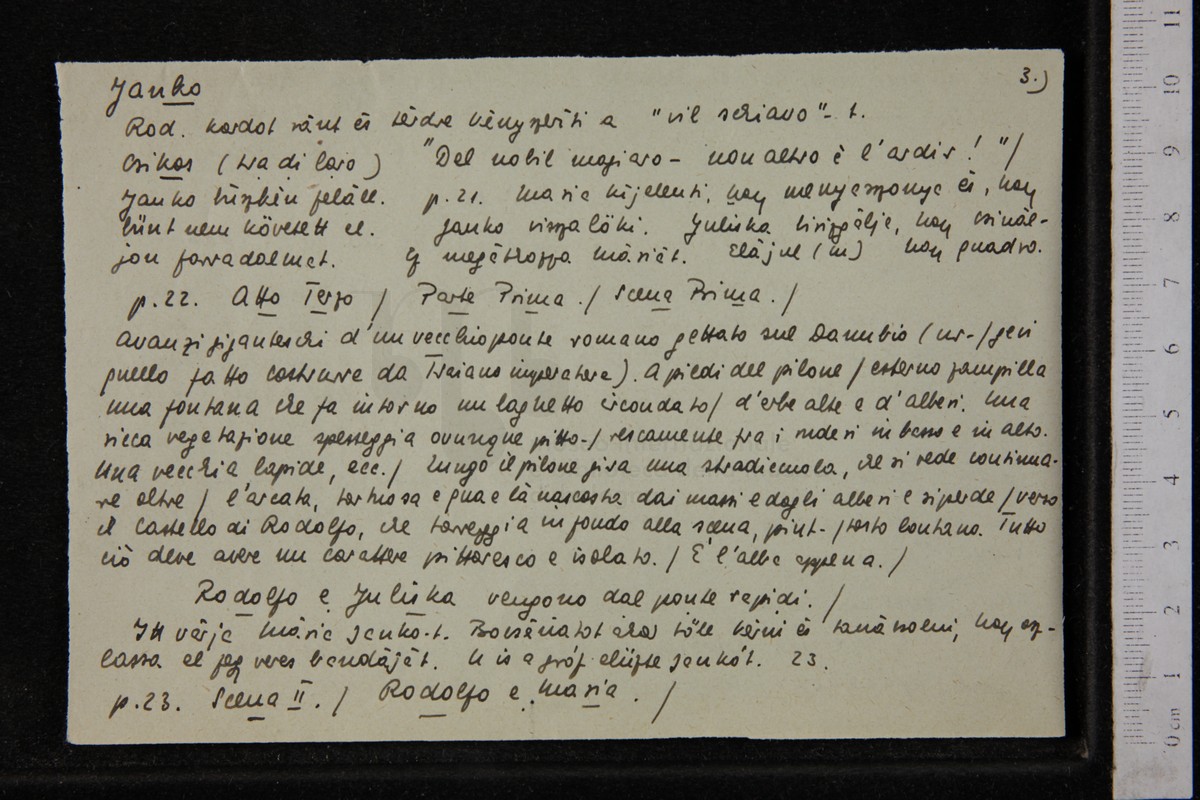 3.)
Janko
Rod. kardot ránt és térdre kényszeríti a "vil schiavo"-t.
Csikos (tra di loro) "Del nobil magiaro – non altro è l'ardir!"/
Janko büszkén feláll. p.21. Maria kijelenti, hogy menyasszonya és, hogy
bünt nem követett el. Janko visszalöki. Juliska bizgálja, hogy csinál-
jon forradalmat. Ő megátkozza Máriát. Elájul (M) nagy quadro.
p.22. Atto Terzo / Parte Prima. / Scena Prima. /
Avanzi giganteschi d'un vecchio ponte romano gettato sul Danubio (
quello fatto costrurre da Traiano imperatore). A piedi del pilone / esterno zampilla
una fontana che fa intorno un laghetto circondato / d'erbe alte e d'alberi. Una
ricca vegetazione spesseggia ovunque pitto-/rescamente fra i ruderi in basso e in alto.
Una vecchia lapide, ecc. / Lungo il pilone gira una stradicciuola, che si vede continua-
re oltre / l'arcata, tortuosa e qua e là nascosta dai massi e dagli alberi e si perde / verso
il Castello di Rodolfo, che torreggia in fondo alla scena, piut-/tosto lontano. Tutto
ciò deve avere un carattere pittoresco e isolato. / È l'alba appena. /
Rodolfo e Juliska vengono dal ponte rapidi. /
Itt várja Mária Jankó-t. Bocsánatot akar tőle kérni és tanácsolni, hogy osz-
lassa el fegyveres bandáját. U is a gróf elüzte Jankót. 23.
p.23. Scena II. / Rodolfo e Maria. /
0 cm 1 2 3 4 5 6 7 8 9 10 11